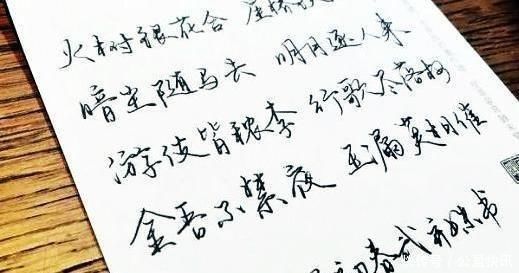 火树银花合 星桥
暗尘随马去 明月逐人来
游伎皆秾李 行歌尽落梅
金吾不禁夜 玉漏莫相催
春武 书